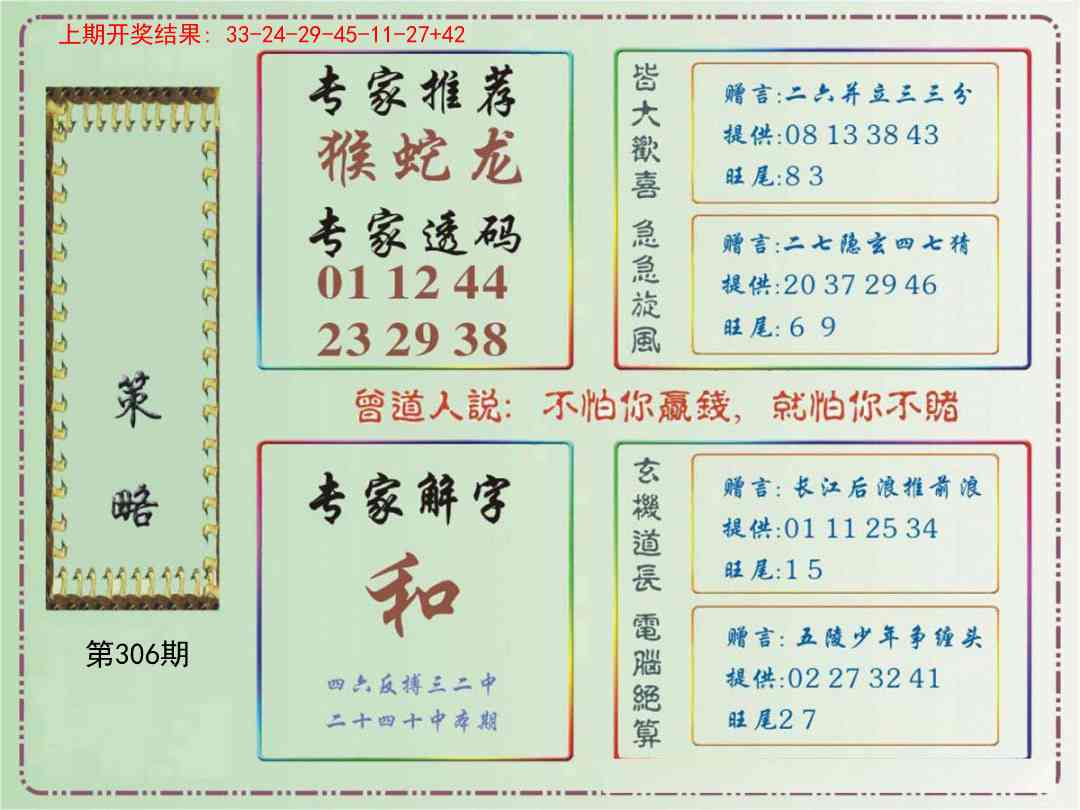 上期开奖结果: 33-24-29-45-11-27+42
策略
第306期
专家推荐
猴蛇龙
专家透码
01 12 44
23 29 38
皆大歡喜
赠言:二六并立三三分
提供:08 13 38 43
旺尾:8 3
急急旋風
赠言:二七隐玄四七猜
提供:20 37 29 46
旺尾: 6 9
曾道人説: 不怕你贏錢, 就怕你不賭
专家解字
和
四六反搏三二中
二十四十中本期
玄機道長
赠言: 长江后浪推前浪
提供:01 11 25 34
旺尾:1 5
電腦絕算
赠言: 五陵少年争缠头
提供:02 27 32 41
旺尾2 7